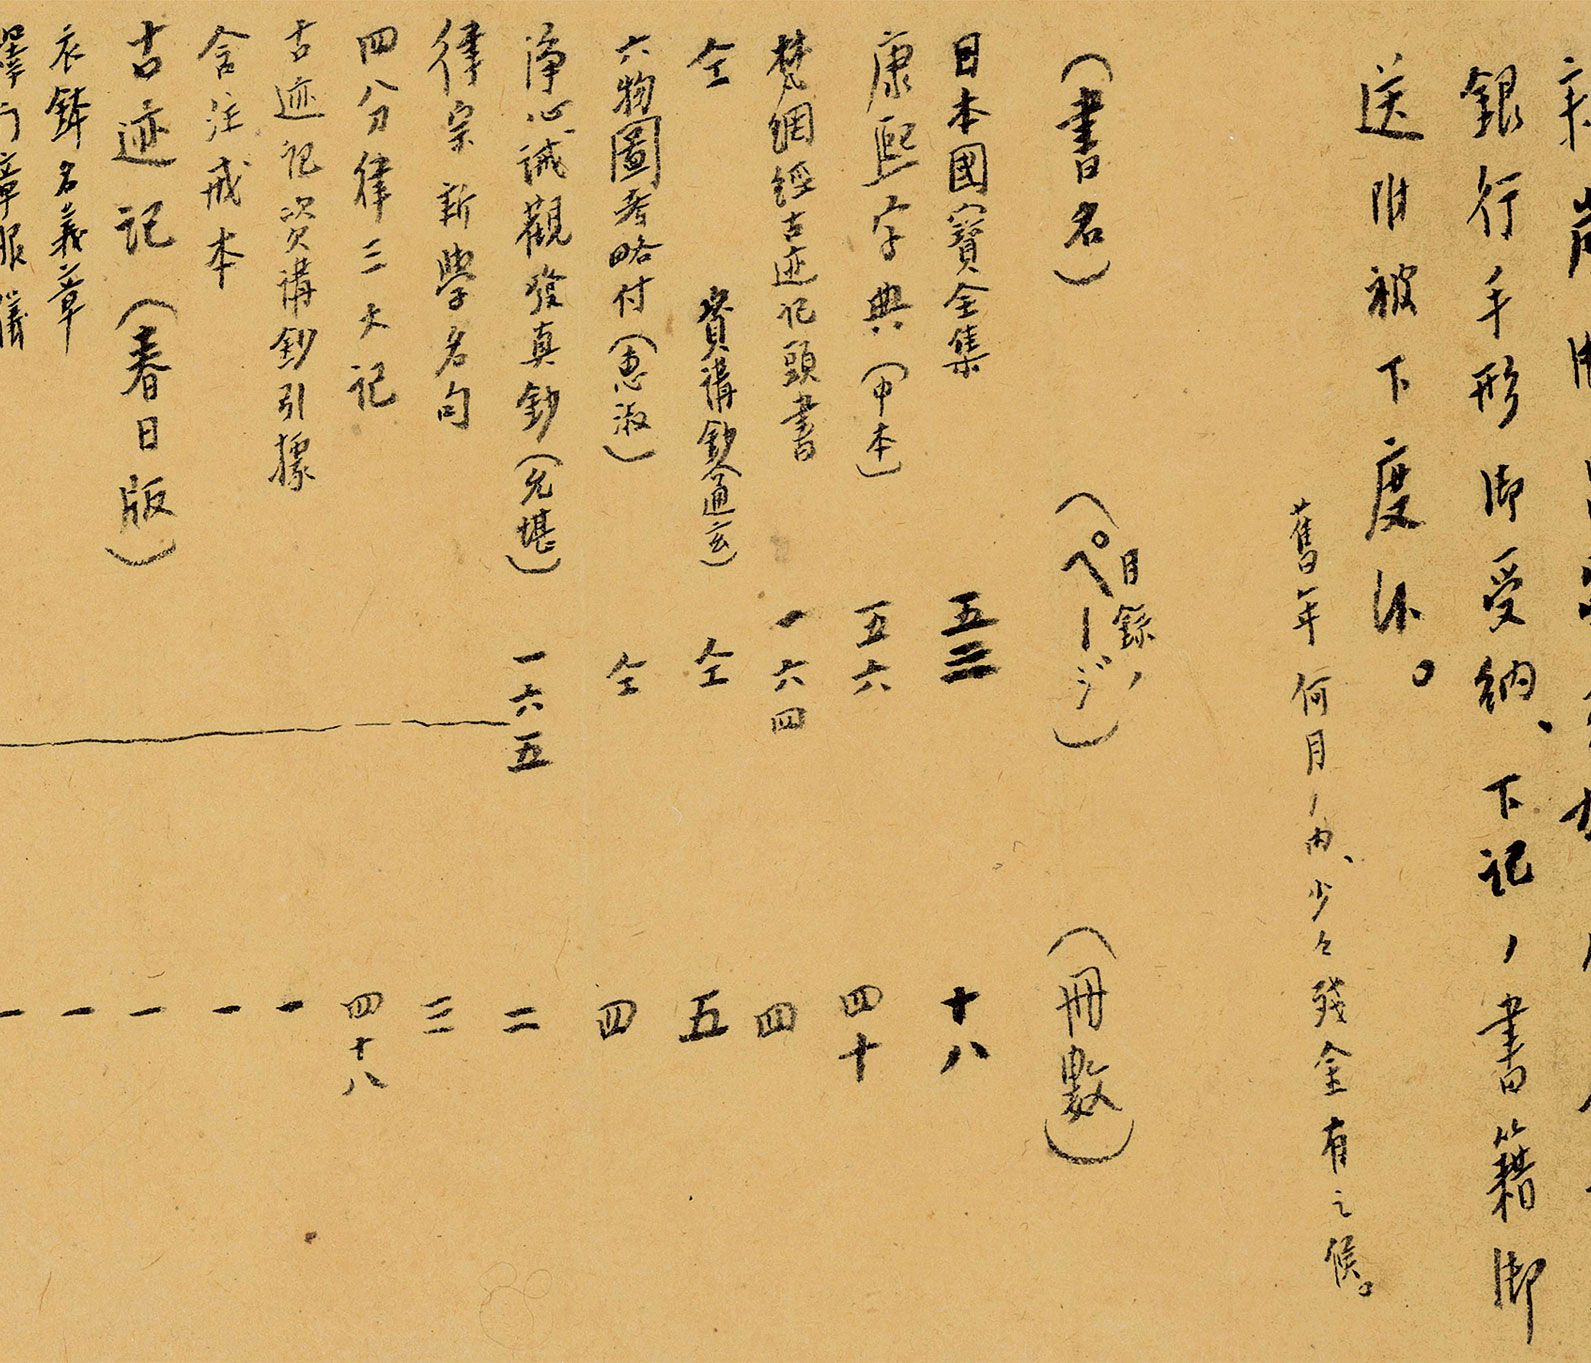 銀行手形御受納、下記ノ書籍御
送附被下度候。
舊年何月ノ内、少々殘金有之候。
(書名) (目錄ノページ) (冊數)
日本國寶全集 五三 十八
康熙字典(中本) 五六 四十
梵網經古迹記頭書 一六四 四
仝 資講鈔(通玄) 仝 五
六物圖考略付(惠淑) 仝 四
淨心誡觀發真鈔(允堪) 一六五 二
律宗新學名句 三
四分律三大記 四十八
古迹記資講鈔引據 一
含注戒本 一
古迹記(春日版) 一
衣鉢名義章 一
釋門章服儀 一